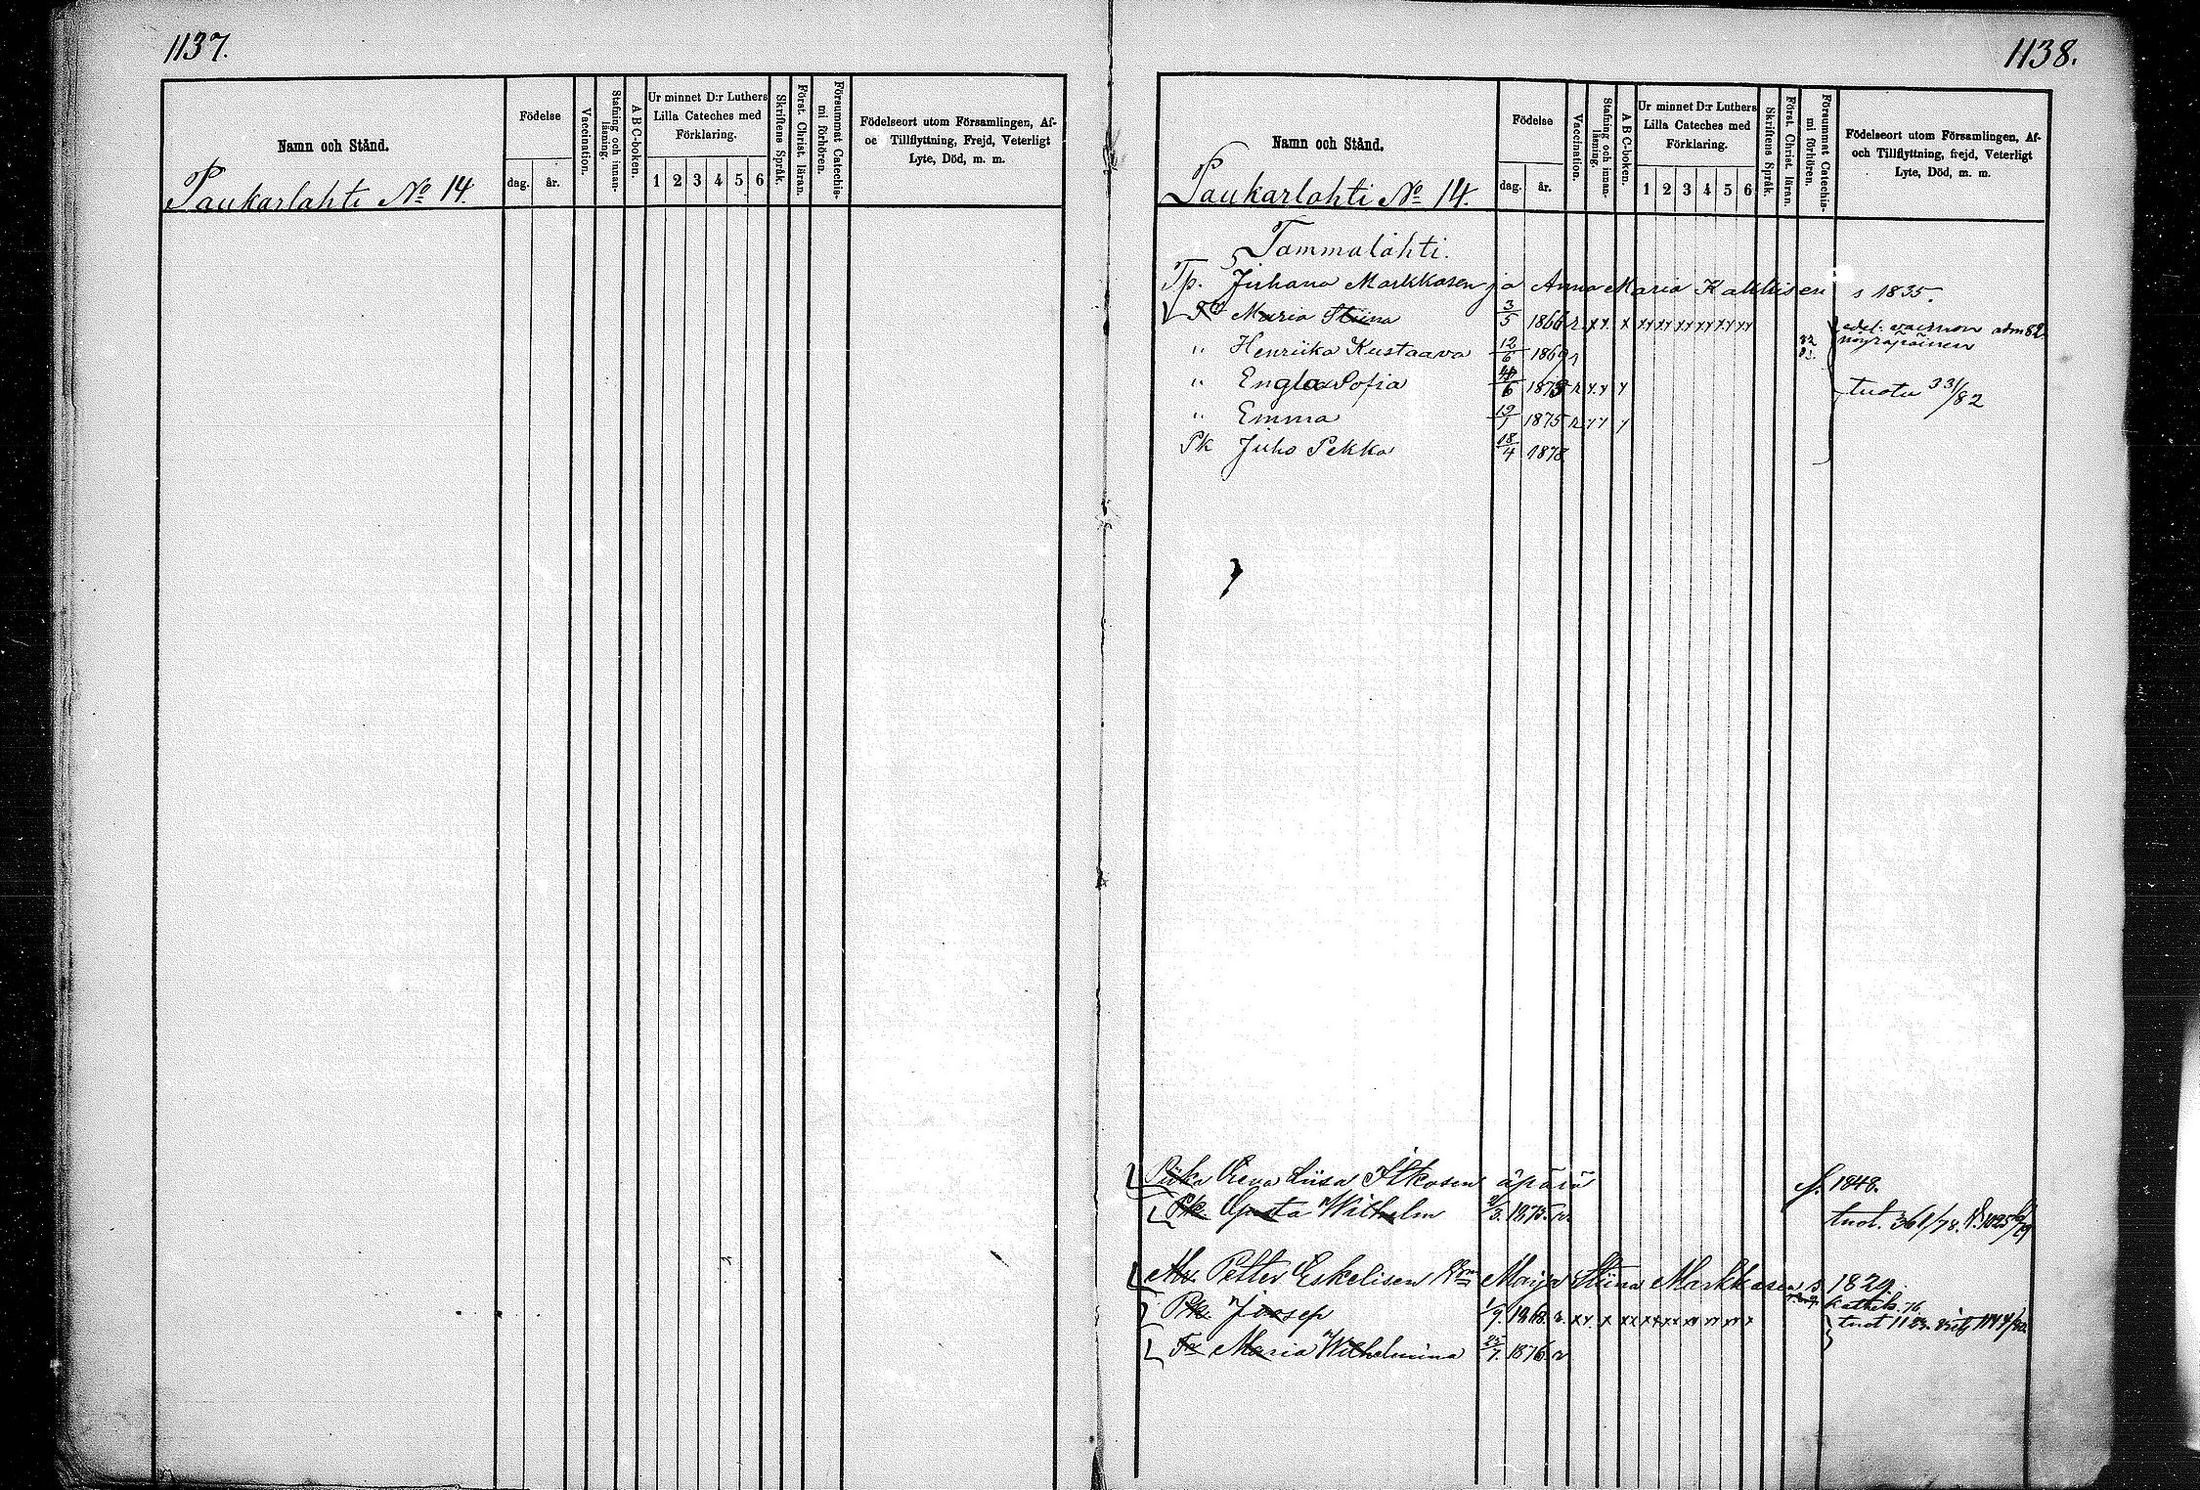 1137.
Namn och Stånd.
Födelse
dag.
år.
Vaccination.
Stafning och innan-
läsning.
A B C-boken.
Ur minnet D:r Luthers
Lilla Cateches med
Förklaring.
1 2 3 4 5 6
Skriftens Språk.
Först. Christ. läran.
Försummat Catechis-
mi förhören.
Födelseort utom Församlingen, Af-
oc Tillflyttning, Frejd, Veterligt
Lyte, Död, m. m.
Paukarlahti No 14.
1138.
Namn och Stånd.
Födelse
dag.
år.
Vaccination.
Stafning och innan-
läsning.
A B C-boken.
Ur minnet D:r Luthers
Lilla Cateches med
Förklaring.
1 2 3 4 5 6
Skriftens Språk.
Först. Christ. läran.
Försummat Catechis-
mi förhören.
Födelseort utom Församlingen, Af-
och Tillflyttning, frejd, Veterligt
Lyte, Död, m. m.
Paukarlahti No 14.
Tammalahti.
Tp. Juhana Markkasen ja Anna Maria Kakkisen s 1835.
Maria Stiina 3/5 1866
" Henriika Kustaava 12/6 1869
" Engla Sofia 1873 tuotu 331/82
" Emma 1875
Pk Juho Pekka 18/4 1878
Piika Eeva Liisa Itkosen äpärä 1848.
Pk. Gusta Wilhelm 1875. tuot. 361/78.
Petter Eskelisen Maija Stiina Markkasen s. 1829.
Pk. Joosep 1/9. 1868.
Maria Wilhelmina 25/7. 1876.